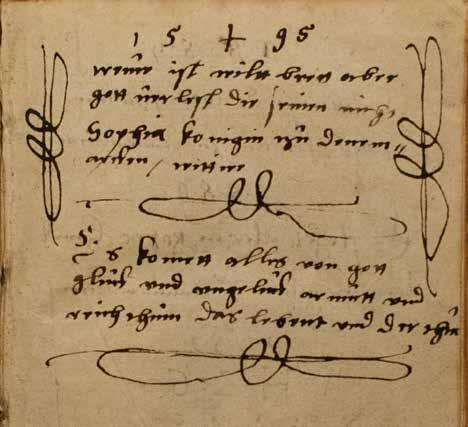 15 + 95
wenig ist wilt brett aber
gott verlest die seinen nicht
Sophia konigin zu denem=
arcken, wittwe
Es komett alles von gott
glück und ungelück armutt und
reichthum das lebent und der thot